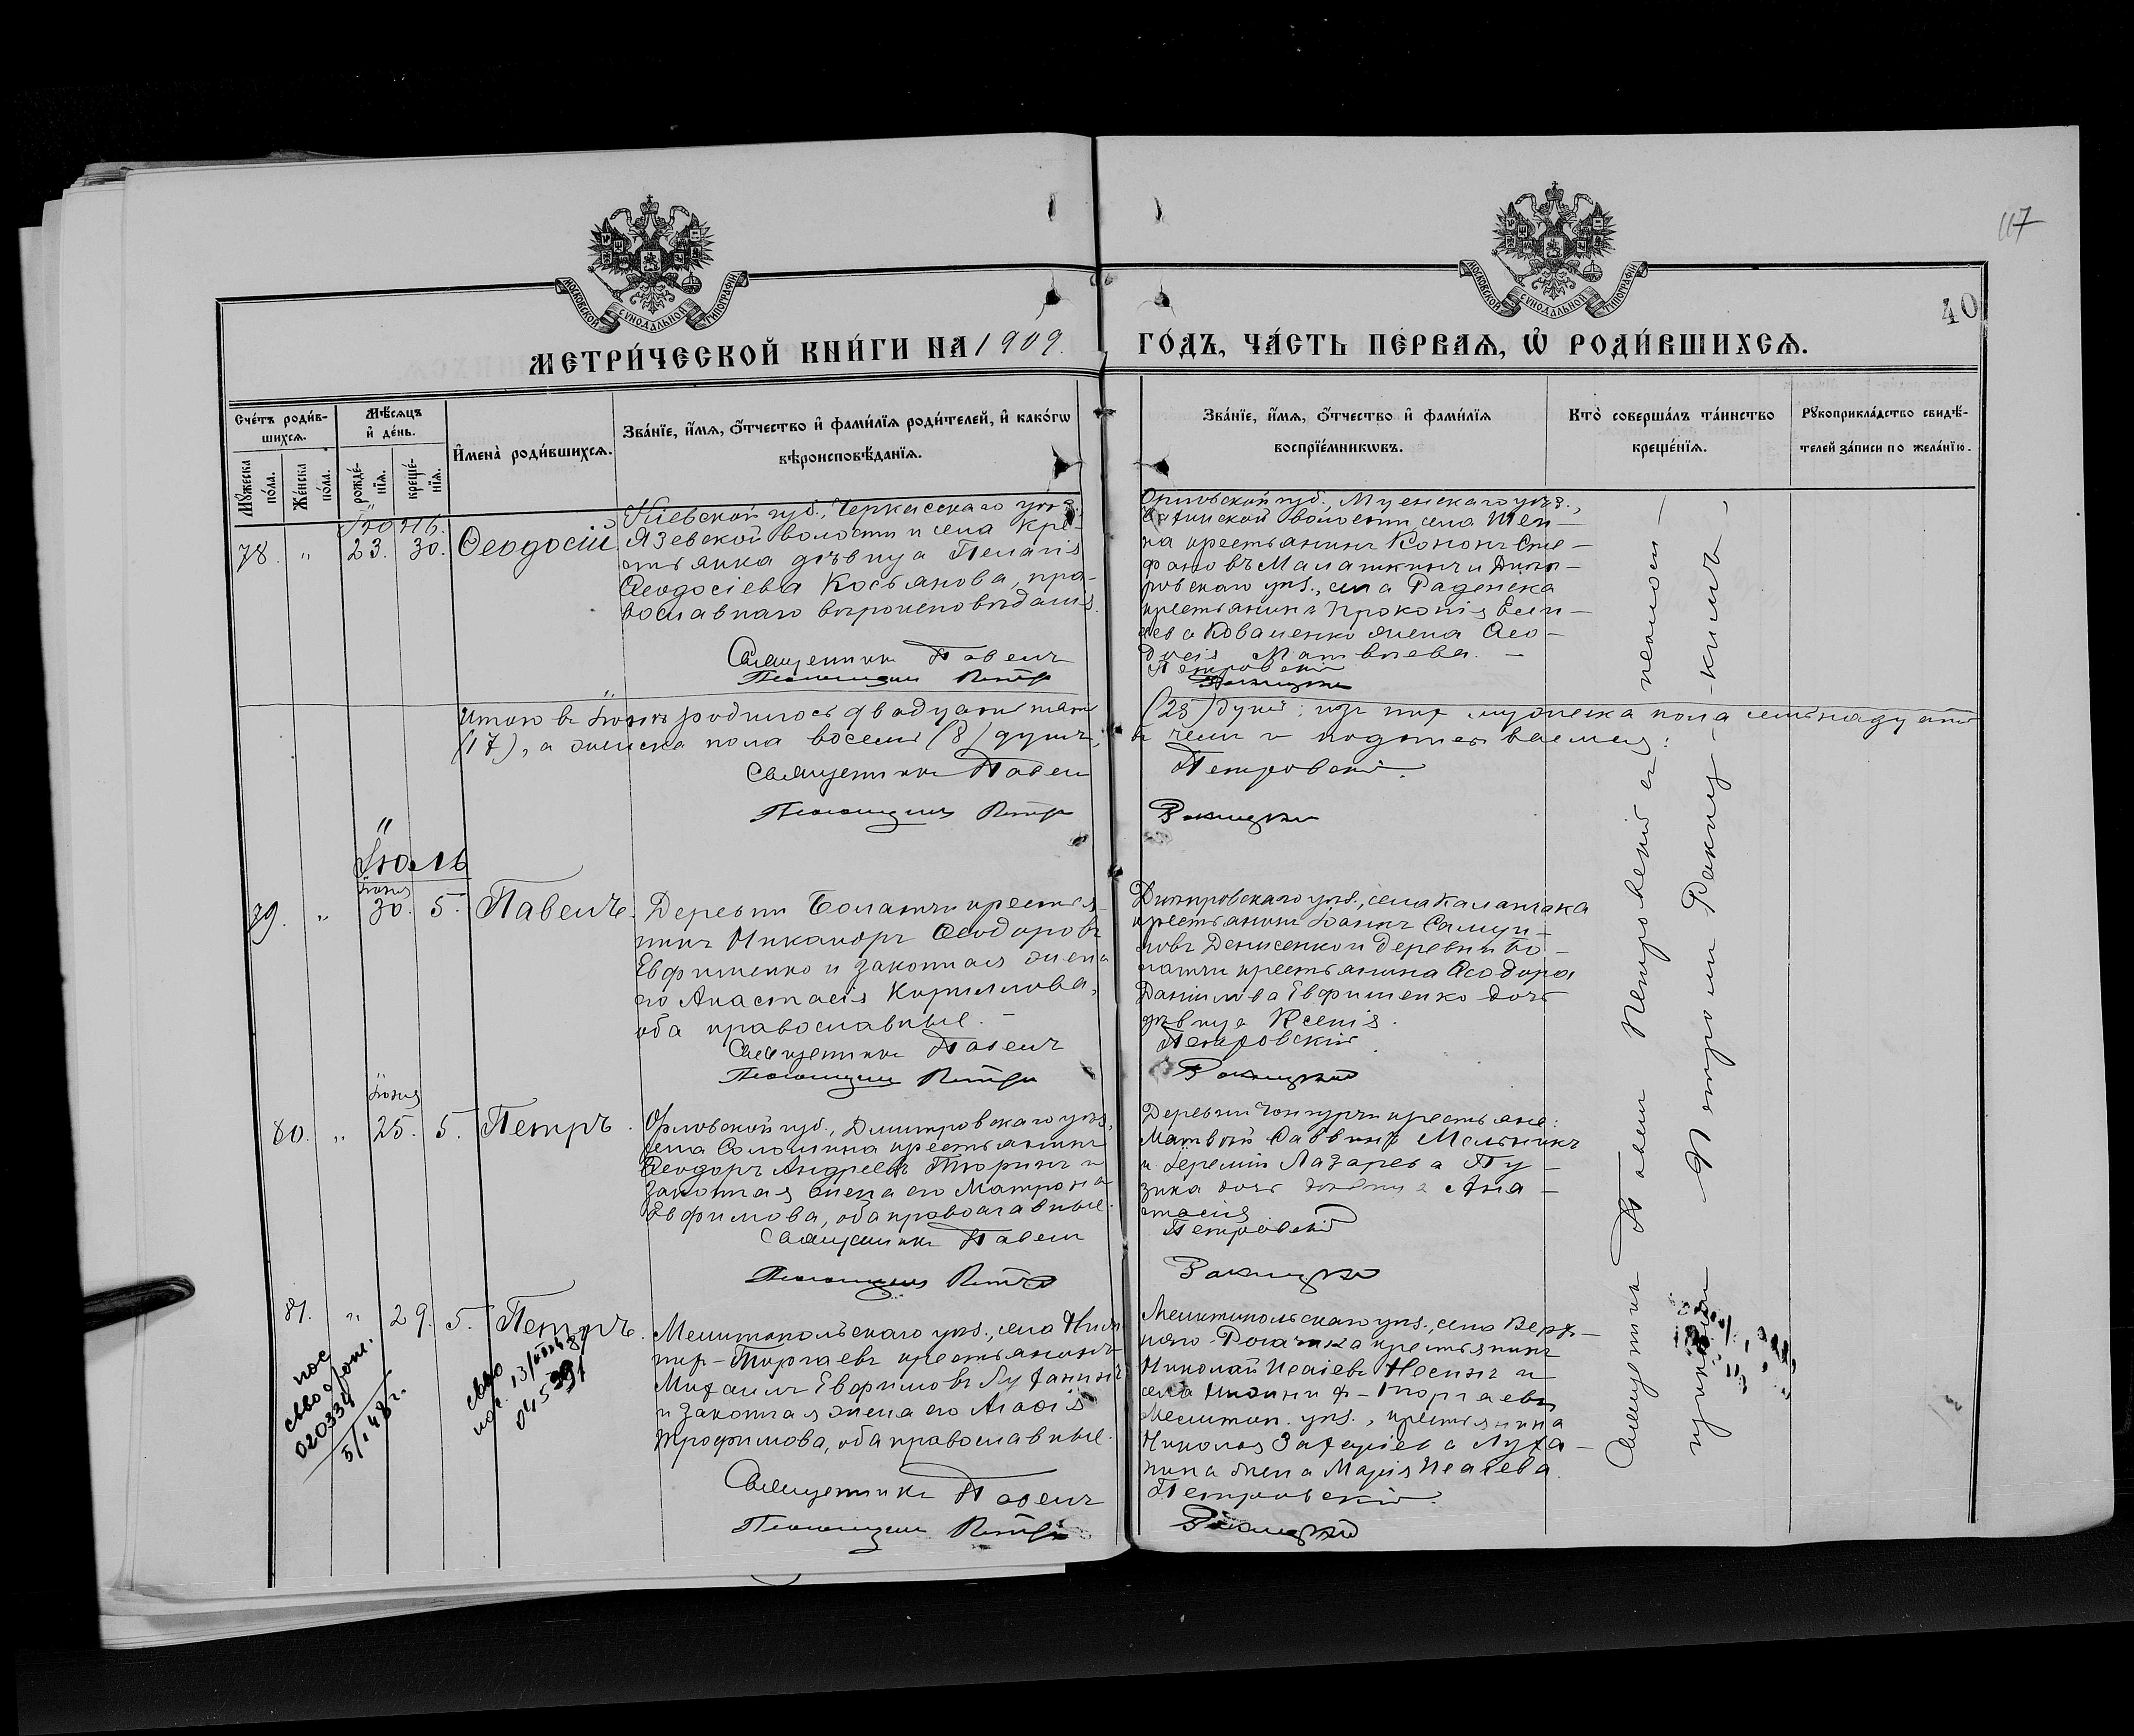 117
40
МОСКОВСКОЙ СѴНОДАЛЬНОЙ ТИПОГРАФІИ
МОСКОВСКОЙ СѴНОДАЛЬНОЙ ТИПОГРАФІИ
МЕТРИ́ЧЕСКОЙ КНИ́ГИ НА 1909.
ГО́ДЪ, ЧА́СТЬ ПЕ́РВАѦ, Ѡ҆ РОДИ́ВШИХСѦ.
Сче́тъ роди́в-
шихсѧ.
Мꙋ́жеска по́ла.
Же́нска по́ла.
Мѣ́сѧцъ и҆ де́нь.
рожде́-нїѧ.
креще́-нїѧ.
И҆мена̀ роди́вшихсѧ.
Зва́нїе, и҆́мѧ, ѻ҆́тчество и҆ фами́лїѧ роди́телей, и҆ како́гѡ
вѣроисповѣ́данїѧ.
Зва́нїе, и҆́мѧ, ѻ҆́тчество и҆ фами́лїѧ
воспрїе́мникѡвъ.
Кто̀ соверша́лъ та́инство
креще́нїѧ.
Рꙋкоприкла́дство свидѣ́-
телей за́писи по жела́нїю.
Іюнь.
78. " 23. 30. Ѳеодосій
Кіевской губ., Черкасскаго уѣз.
Язевской волости и села кре-
стьянка дѣвица Пелагія
Ѳеодосіева Косьянова, пра-
вославнаго вѣроисповѣданія.
Священникъ Павелъ
Псаломщикъ Петръ
Орловской губ., Мценскаго уѣз.,
волости, села
на крестьянинъ Кононъ Сте-
фановъ Малашкинъ и Днѣп-
ровскаго уѣз., села Раденска
крестьянина Прокопія Ели-
сева Коваленко жена Ѳео-
досія Матвѣева. -
Петровскій
Ракицкій
Итого въ Іюнѣ родилось двадцать пять
(25) душъ; изъ нихъ мужеска пола семнадцать
(17), а женска пола восемь (8) душъ,
въ чемъ и подписываемся:
Священникъ Павелъ
Петровскій.
Псаломщикъ Петръ
Ракицкій
Іюль
Іюня
79. " 30. 5. Павелъ.
Деревни Болатчи крестья-
нинъ Никаноръ Ѳеодоровъ
Евфименко и законная жена
его Анастасія Кириллова,
оба православные. -
Священникъ Павелъ
Псаломщикъ Петръ
Днѣпровскаго уѣз., села Каланчака
крестьянинъ Іоаннъ Самуи-
ловъ Денисенко и деревни Бо-
латчи крестьянина Ѳеодора
Даніилова Евфименко дочь
дѣвица Ксенія.
Петровскій
Ракицкій
Іюня
80. " 25. 5. Петръ.
Орловской губ., Дмитровскаго уѣз.,
села Соломина крестьянинъ
Ѳеодоръ Андреевъ Тюринъ и
законная жена его Матрона
Евфимова, оба православные.
Священникъ Павелъ
Псаломщикъ Петръ
Деревни Чонгурчи крестьяне:
Матвѣй Саввинъ Мельникъ
и Іереміи Лазарева Пу-
зика дочь дѣвица Ана-
стасія
Петровскій
Ракицкій
81. " 29. 5. Петръ.
Мелитопольскаго уѣз., села Ниж-
нир-Торгаевъ крестьянинъ
Михаилъ Евфимовъ Луханинъ
и законная жена его Агафія
Трофимова, оба православные.
Священникъ Павелъ
Псаломщикъ Петръ
Мелитопольскаго уѣз., села Верх-
няго-Рогачика крестьянинъ
Николай Исаіевъ Несинъ и
села Нижнихъ-Торгаевъ
Мелитоп. уѣз., крестьянина
Николая Захаріева Луха-
нина жена Марія Исаіева.
Петровскій.
Ракицкій
Священникъ Павелъ Петровскій съ псалом-
щикомъ Петромъ Ракиц-кимъ
пос
020334
5/I 48 г.